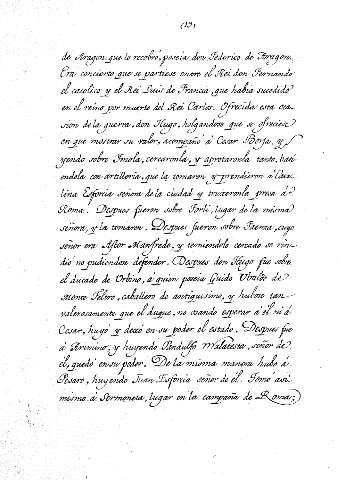 (12)
de Aragon, que lo recobró, poseia don Federico de Aragon.
Era concierto que se partiese entre el Rei don Fernando
el catolico y el Rei Luis de Francia, que habia sucedido
en el reino por muerte del Rei Carlos. Ofrecida esta oca-
sion de la guerra, don Hugo, holgandose que se ofreciese
en que mostrar su valor, acompañó a Cesar Borja, y
yendo sobre Imola, cercaronla, y apretaronla tanto, bati-
endola con artilleria, que la tomaron y prendieron á Cata-
lina Esforcia señora de la ciudad y truxeronla presa á
Roma. Despues fueron sobre Forli, lugar de la misma
señora, y la tomaron. Despues fueron sobre Faenza, cuyo
señor era Astor Manfredo, y teniendole cercado se rin-
dió no pudiendose defender. Despues don Hugo fue sobre
el ducado de Urbino, á quien poseia Guido Ubaldo de
Monte Feltro, caballero de antiguisimo, y hubose tan
valerosamente que el duque, no osando esperar á él ni á
Cesar, huyó y dexó en su poder el estado. Despues fué
á Arimino, y huyendo Pandulfo Malatesta, señor de
él, quedó en su poder. De la misma manera hubo á
Pesaro, huyendo Juan Esforcia señor de él. Tomó asi
mismo á Sermoneta, lugar en la campaña de Roma;